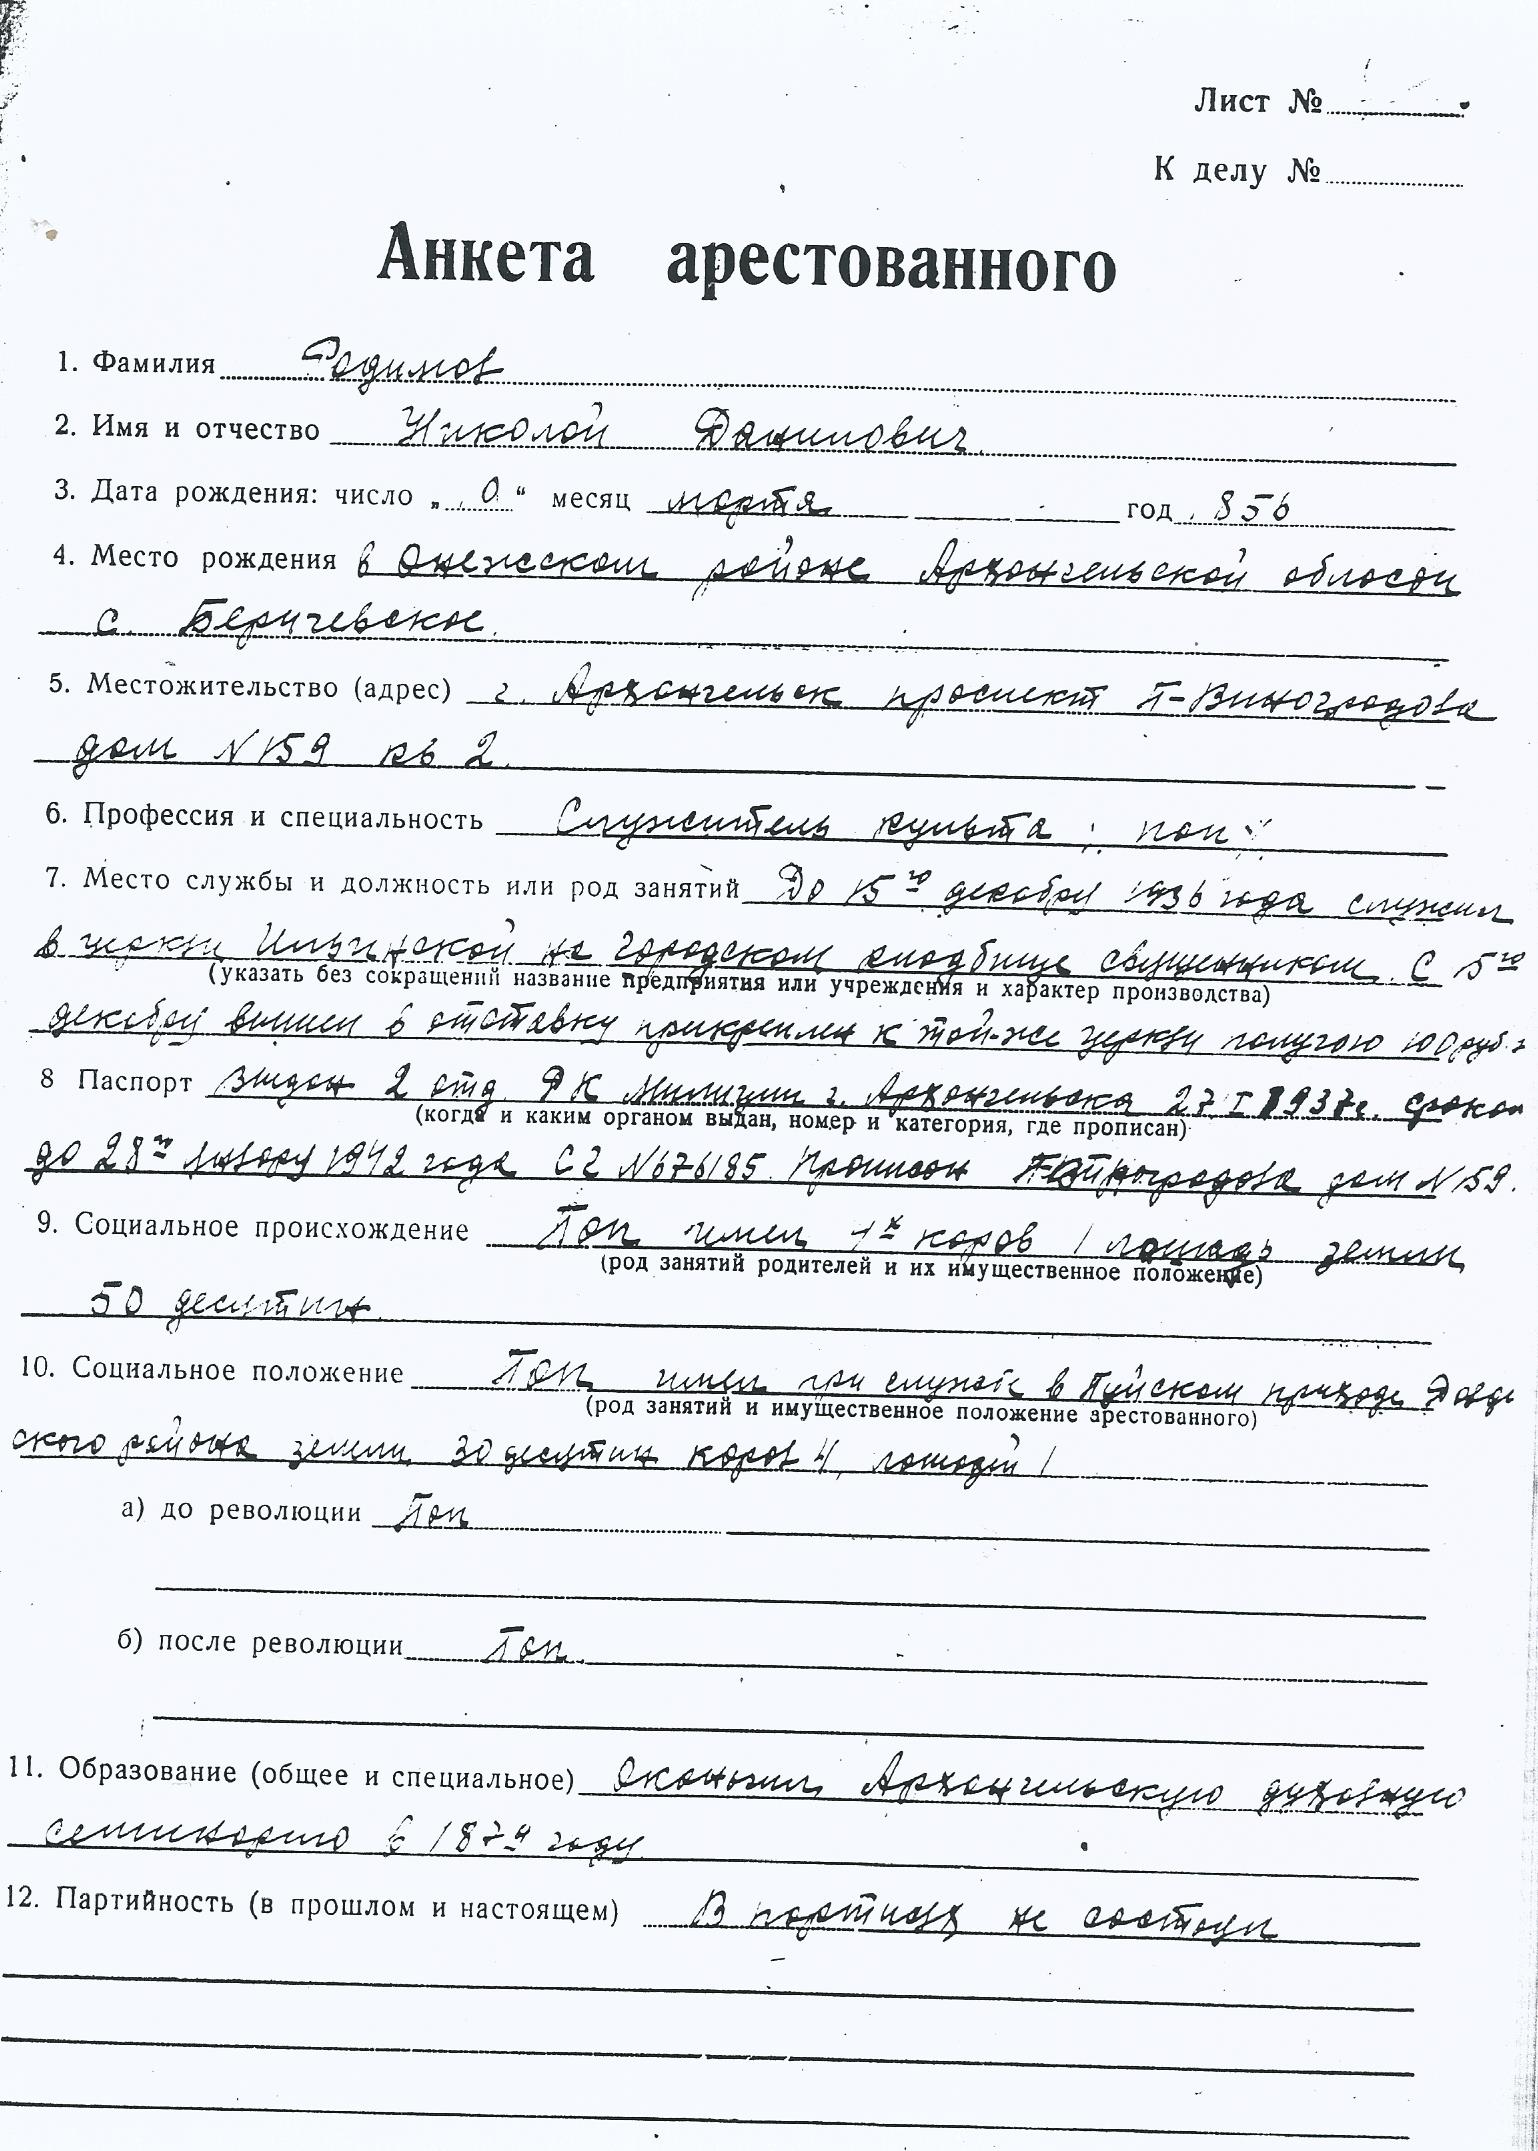 Лист №
К делу №
Анкета арестованного
1. Фамилия Родимов
2. Имя и отчество Николай Данилович
3. Дата рождения: число „ 0 “ месяц марта год 856
4. Место рождения в Онежском районе Архангельской области
с.
5. Местожительство (адрес) г. Архангельск проспект П-Виноградова
дом N 159 кв 2.
6. Профессия и специальность Служитель культа поп
7. Место службы и должность или род занятий До 15го декабря 1936 года служил
в церкви Ильинской на городском кладбище священником. С 15го
(указать без сокращений название предприятия или учреждения и характер производства)
декабря вышел в отставку прикреплен к той-же церкви получаю 100 руб.
8 Паспорт выдан 2 отд. РК Милиции г. Архангельска 27.I 1937г. сроком
(когда и каким органом выдан, номер и категория, где прописан)
до 28го января 1942 года N 676185 Прописан П-Виноградова дом N 159.
9. Социальное происхождение Поп имел 4х коров 1 лошадь земли
(род занятий родителей и их имущественное положение)
50 десятин.
10. Социальное положение Поп имел при службе в Пуйском приходе
(род занятий и имущественное положение арестованного)
ского района земли 30 десятин коров 4, лошадей 1
а) до революции Поп
б) после революции Поп.
11. Образование (общее и специальное) Окончил Архангельскую духовную
семинарию в 187 году.
12. Партийность (в прошлом и настоящем) В партиях не состоял